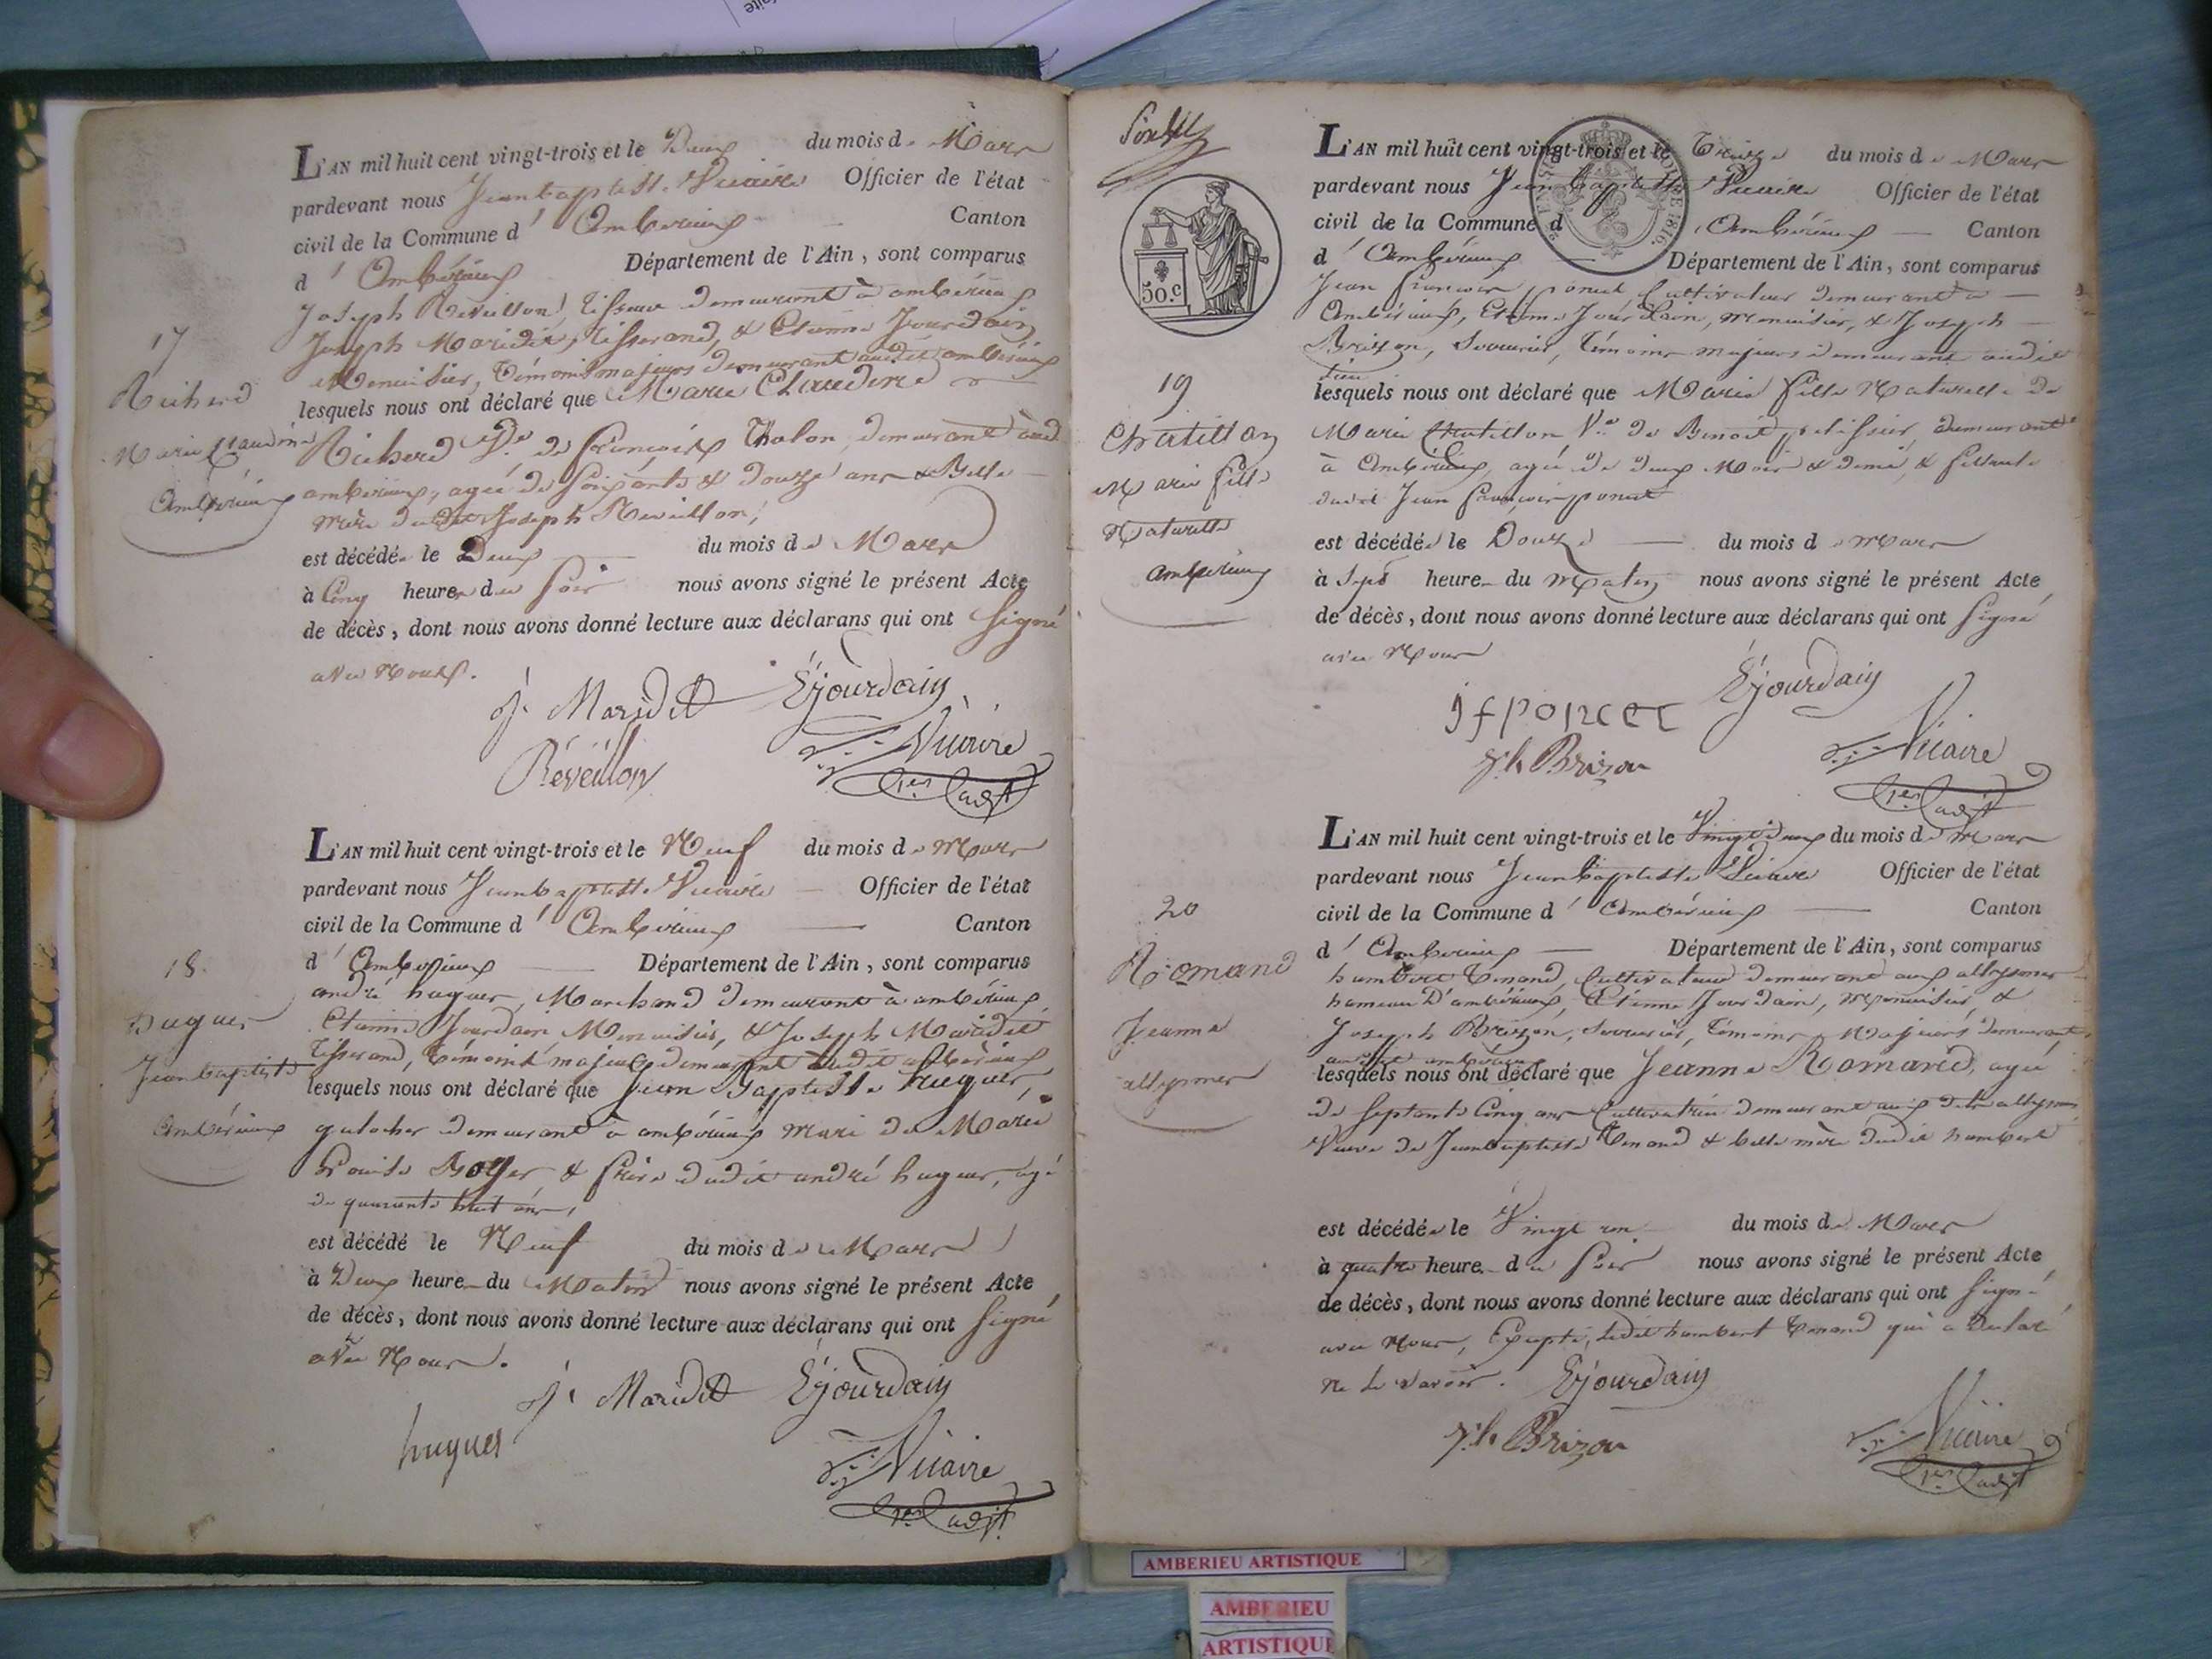 L'AN mil huit cent vingt-trois et le Deux du mois de Mars
pardevant nous Jean baptiste Vicaire Officier de l'état
civil de la Commune d' Ambérieux Canton
d' Ambérieux Département de l'Ain, sont comparus
Joseph Reveillon, tisseur demeurant à ambérieux
Joseph Maridet, tisserand, & Etienne Jourdain
Menuisier, témoins majeurs demeurant audit ambérieux
17
Richerd
Marie Claudine
Ambérieux
lesquels nous ont déclaré que Marie Claudine
Richerd Ve. de françois Thalon, demeurant aud.
ambérieux, agée de soixante & douze ans & Belle
mère dudit Joseph Reveillon,
est décédée le Deux du mois de Mars
à Cinq heures du soir nous avons signé le présent Acte
de décès, dont nous avons donné lecture aux déclarans qui ont signé
avec nous.
J. Maridet Ejourdain
Réveillon Vicaire
1er adjt
L'AN mil huit cent vingt-trois et le Neuf du mois de Mars
pardevant nous Jean baptiste Vicaire Officier de l'état
civil de la Commune d' Ambérieux Canton
d' Ambérieux Département de l'Ain, sont comparus
andré hugues, Marchand demeurant à ambérieux
Etienne Jourdain Menuisier, & Joseph Maridet
tisserand, témoins majeurs demeurant audit ambérieux
18
hugues
Jean baptiste
Ambérieux
lesquels nous ont déclaré que Jean Baptiste hugues,
demeurant à ambérieux mari de Marie
Louise Boyer & frère dudit andré hugues, agé
de quarante huit ans,
est décédé le Neuf du mois de Mars
à Deux heure du Matin nous avons signé le présent Acte
de décès, dont nous avons donné lecture aux déclarans qui ont signé
avec nous.
J. Maridet Ejourdain
hugues Vicaire
1er adjt
L'AN mil huit cent vingt-trois et le Treize du mois de Mars
pardevant nous Jean baptiste Vicaire Officier de l'état
civil de la Commune d' Ambérieux Canton
d' Ambérieux Département de l'Ain, sont comparus
50.c
1816.
Jean françois poncet Cultivateur demeurant à
Ambérieux, Etienne Jourdain, menuisier, & Joseph
Brizon, Serrurier, témoins majeurs demeurant audit
lieu
19
Chatillon
Marie fille
Naturelle
ambérieux
lesquels nous ont déclaré que Marie fille Naturelle de
Marie Chatillon Ve. de Benoit pelissier, demeurante
à Ambérieux, agée de deux Mois & demi, & filleule
dudit Jean françois poncet
est décédée le Douze du mois de mars
à Sept heure du Matin nous avons signé le présent Acte
de décès, dont nous avons donné lecture aux déclarans qui ont signé
avec Nous
jfponcet Ejourdain
jh Brizon Vicaire
1er adjt
L'AN mil huit cent vingt-trois et le Vingt deux du mois de Mars
pardevant nous Jean baptiste Vicaire Officier de l'état
civil de la Commune d' Ambérieux Canton
d' Ambérieux Département de l'Ain, sont comparus
humbert Tenand, Cultivateur demeurant aux allymes
hameau D'ambérieux, Etienne Jourdain, menuisier &
Joseph Brizon, Serrurier, témoins Majeurs demeurants
audit ambérieux
20
Romand
Jeanne
allymes
lesquels nous ont déclaré que Jeanne Romand, agée
de septante Cinq ans Cultivatrice demeurant aux dits allymes
Veuve de Jean baptiste Tenand & belle mère dudit humbert
est décédée le Vingt un du mois de Mars
à quatre heure du Soir nous avons signé le présent Acte
de décès, dont nous avons donné lecture aux déclarans qui ont signé
avec Nous, Excepté ledit humbert Tenand qui a déclaré
ne le savoir. Ejourdain
jh Brizon Vicaire
1er adjt
AMBERIEU ARTISTIQUE
AMBERIEU
ARTISTIQUE